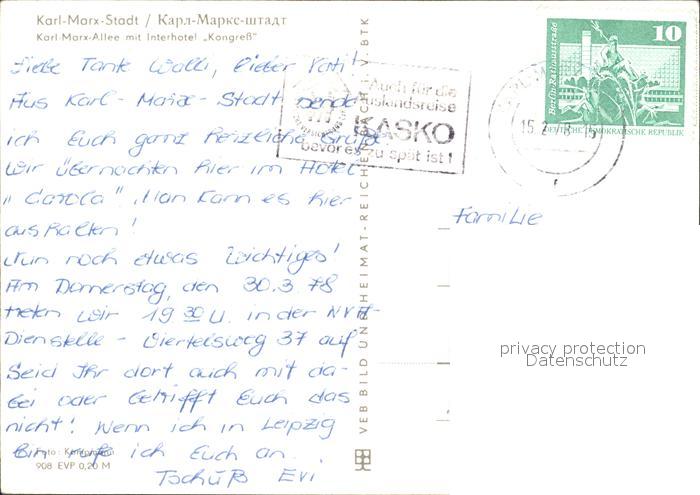 Karl-Marx-Stadt / Карл-Маркс-штадт
Karl-Marx-Allee mit Interhotel „Kongreß"
Liebe Tante Walli, lieber Vati!
Aus Karl-Marx-Stadt sende
ich Euch ganz herzliche Grüße.
Wir übernachten hier im Hotel
"Carola". Man kann es hier
aushalten!
Nun noch etwas Wichtiges!
Am Donnerstag, den 30.3.78
treten wir 19 30 U. in der
Dienstelle - Viertelsweg 37 auf
Seid Ihr dort auch mit da-
bei oder betrifft Euch das
nicht! Wenn ich in Leipzig
bin ich Euch an.
Tschüß Evi
908 EVP 0,20 M
VEB BILD UND HEIMAT REICHENBACH I. V. BTK
Auch für die
Auslandsreise
KASKO
bevor es zu spät ist!
15.2.78-15
Berlin-Rathausstraße
10
DEUTSCHE DEMOKRATISCHE REPUBLIK
Familie
privacy protection
Datenschutz